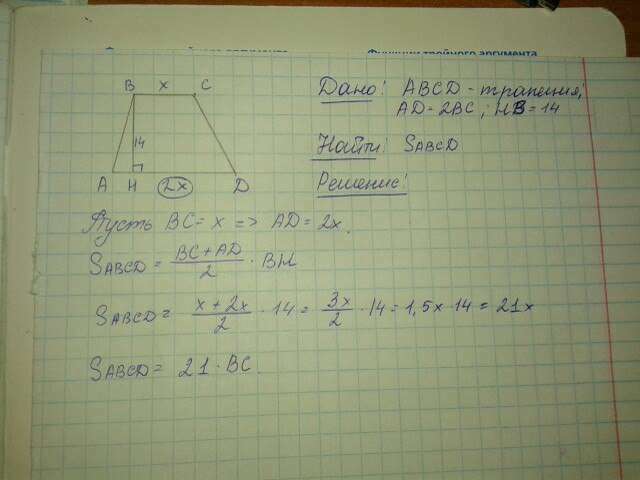 Функции тройного аргумента
B x C
Дано: ABCD - трапеция,
AD = 2BC ; HB = 14
14
Найти: SABCD
A H 2x D
Решение:
Пусть BC = x => AD = 2x.
SABCD = BC + AD / 2 · BH
SABCD = x + 2x / 2 · 14 = 3x / 2 · 14 = 1,5x · 14 = 21x
SABCD = 21 · BC.